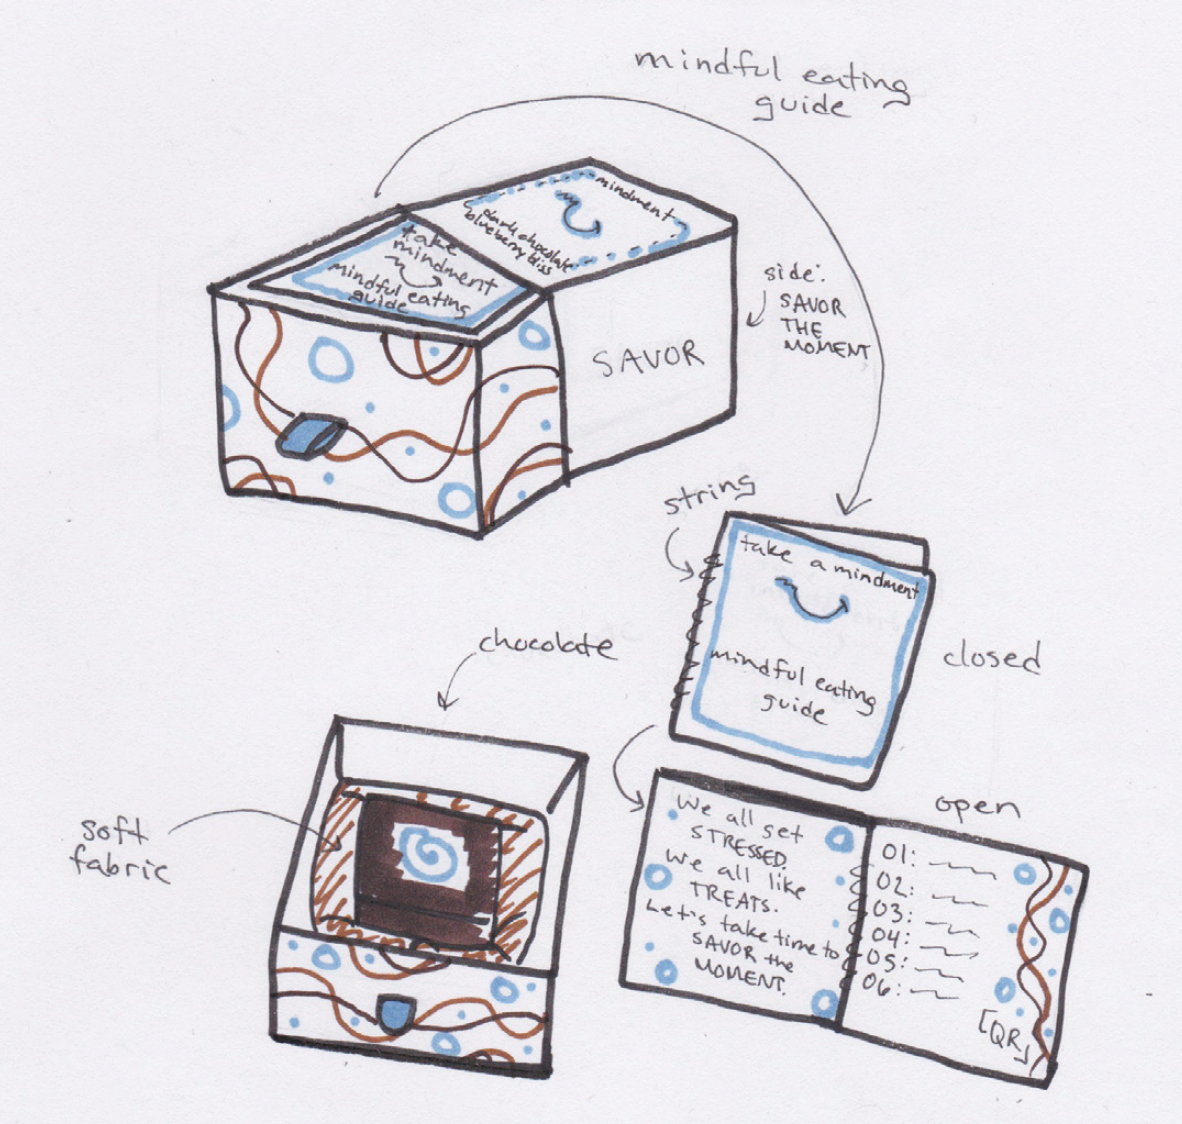 mindful eating
guide
mindment
dark chocolate
blueberry bliss
take
mindment
mindful eating
guide
side:
SAVOR
THE
MOMENT
SAVOR
string
take a mindment
mindful eating
guide
closed
chocolate
soft
fabric
open
We all get
STRESSED.
We all like
TREATS.
Let's take time to
SAVOR the
MOMENT.
01:
02:
03:
04:
05:
06:
[QR]